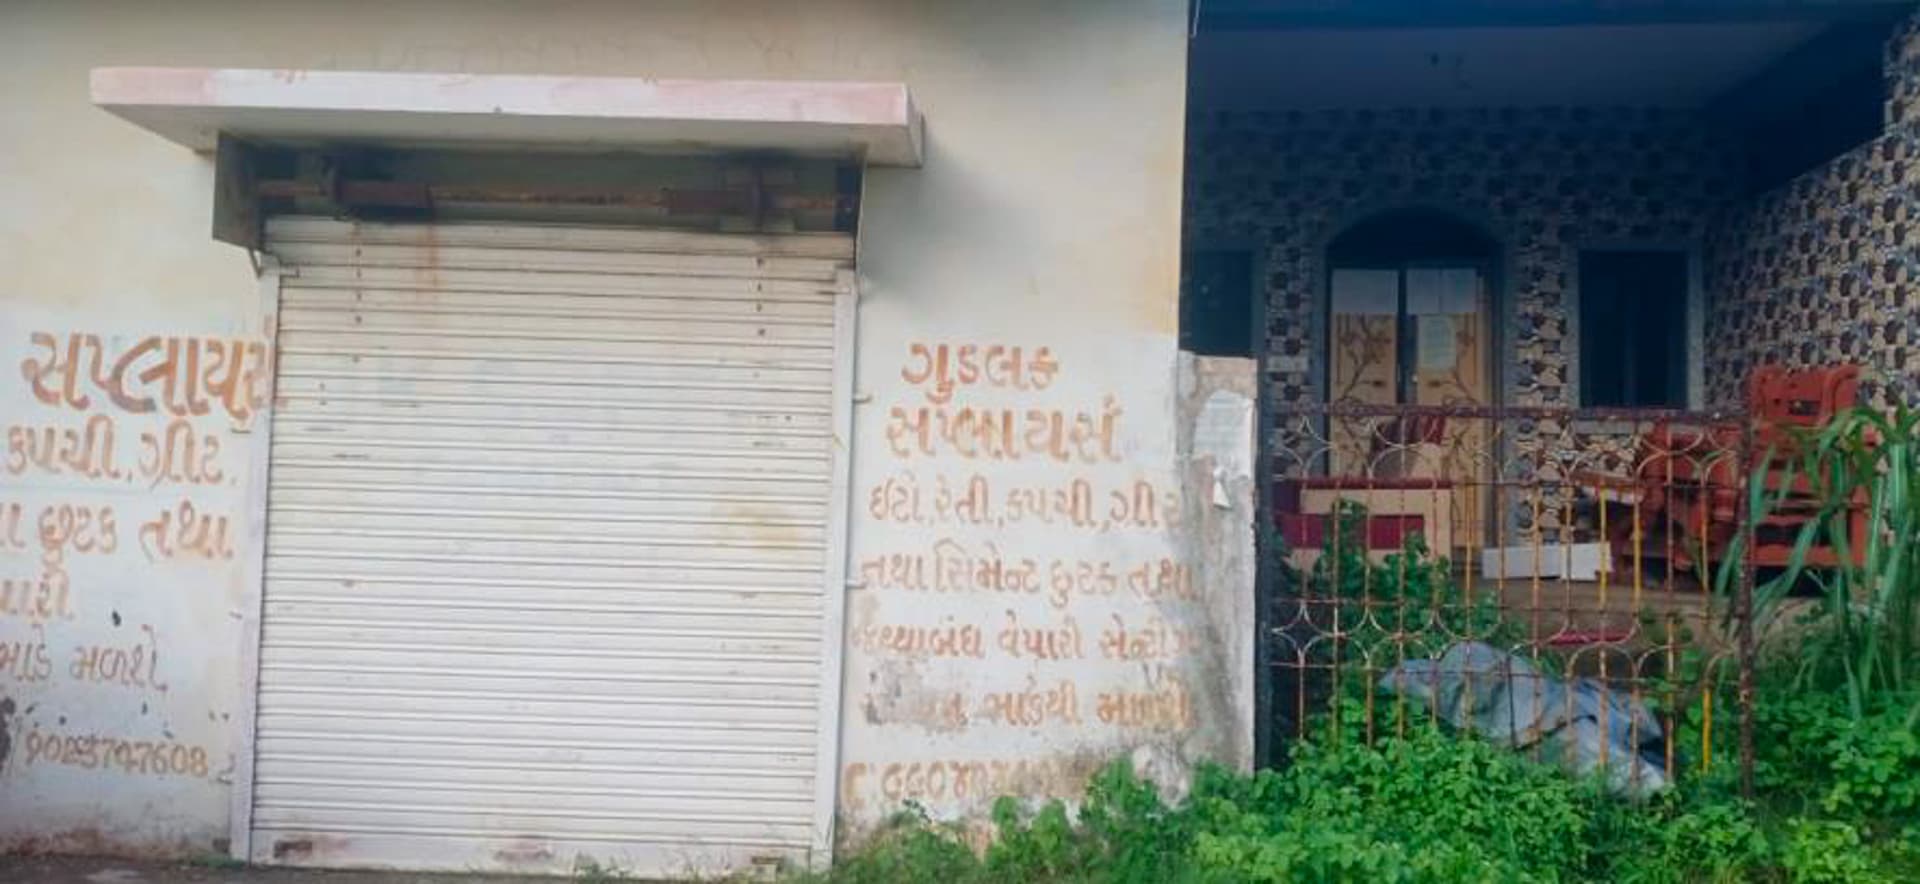 સપ્લાયર્સ
કપચી, ગ્રીટ,
છુટક તથા
ભાડે મળશે.
ગુડલક
સપ્લાયર્સ
ઈંટો, રેતી, કપચી, ગ્રીટ
તથા સિમેન્ટ છુટક તથા
જથ્થાબંધ વેપારી સેન્ટીંગ
ભાડેથી મળશે